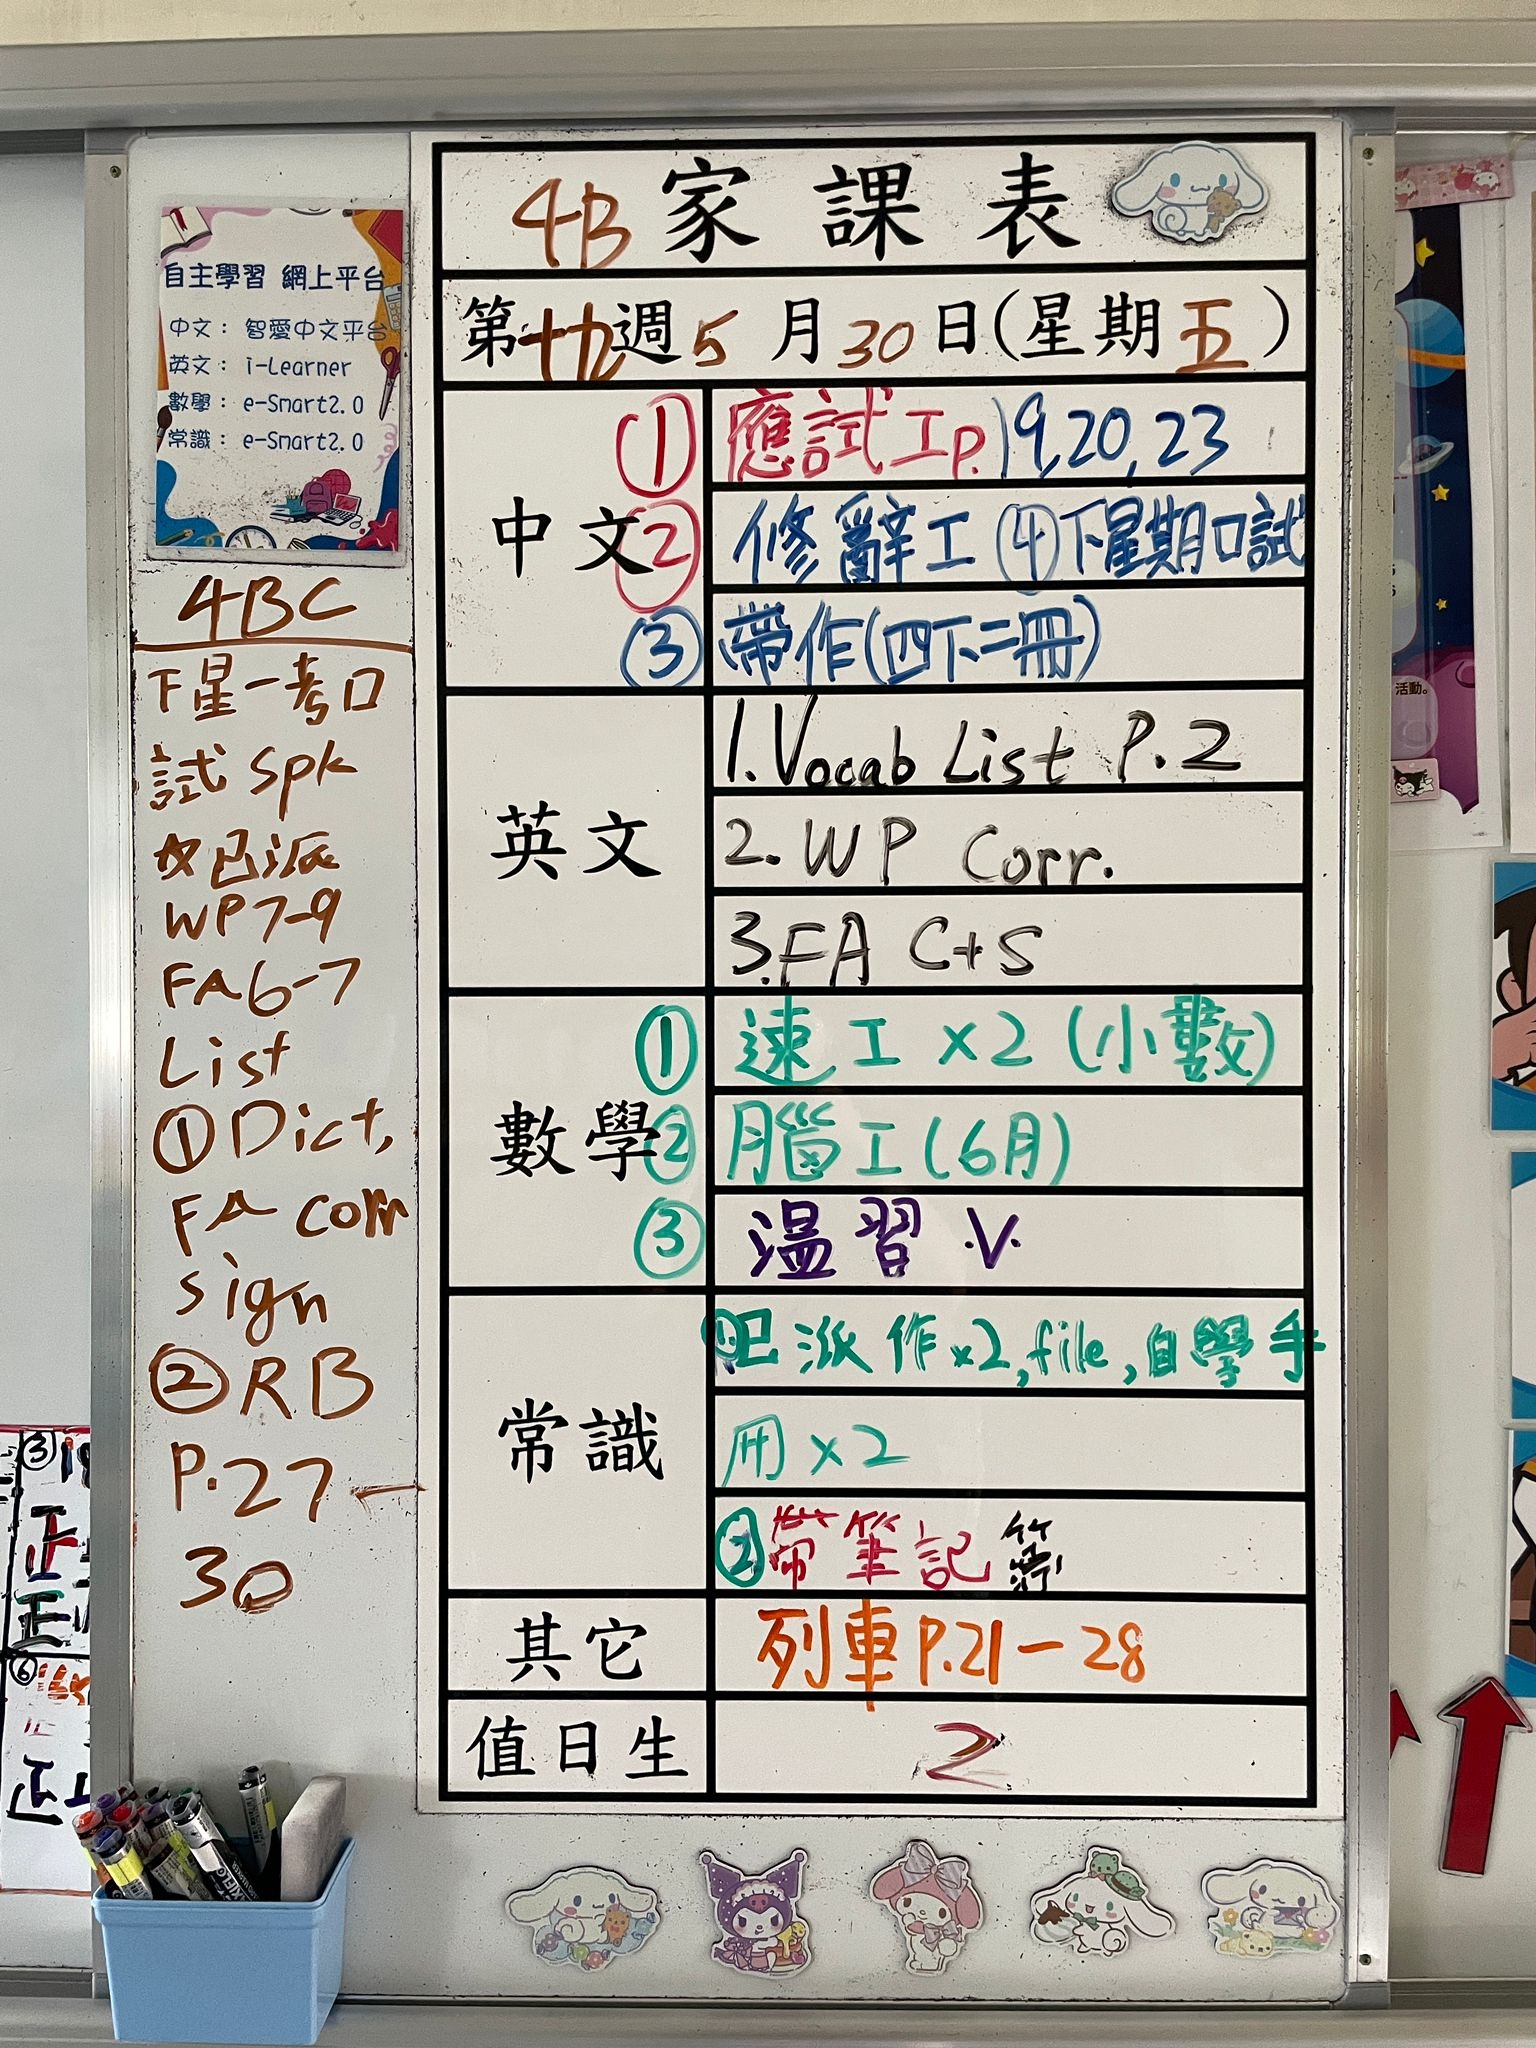 自主學習 網上平台
中文： 智愛中文平台
英文： i-Learner
數學： e-Smart2.0
常識： e-Smart2.0
4BC
下星一考口
試 spk
已派
WP7-9
FA6-7
List
①Dict,
FA corr
sign
②RB
P.27
30
4B 家課表
第十九週5月30日(星期五)
中文
① 應試工p.19,20,23
② 修辭工 ④下星期口試
③ 帶作(四下二冊)
英文
1.Vocab List P.2
2.WP Corr.
3.FA C+S
數學
① 速工 x2 (小數)
② 腦工(6月)
③ 溫習 .V.
常識
①已派作x2,file,自學手
冊x2
②帶筆記簿
其它
列車P.21-28
值日生
2
活動。